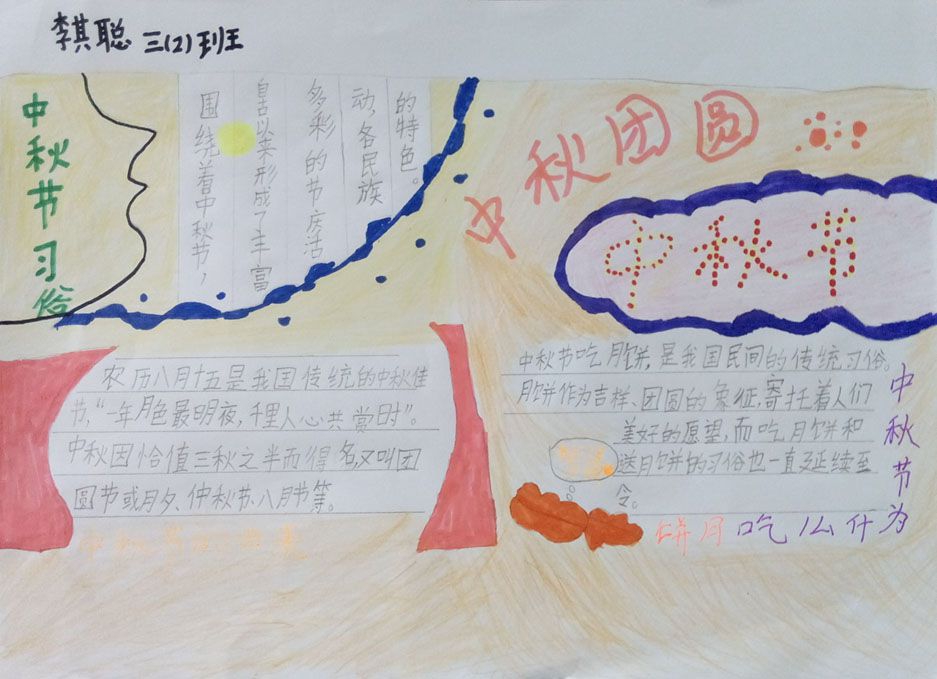 李其聪 三(2)班
中秋节习俗
围绕着中秋节，
自古以来形成了丰富
多彩的节庆活
动，各民族
的特色。
中秋团圆
中秋节
农历八月十五是我国传统的中秋佳
节，“一年月色最明夜，千里人心共赏时”。
中秋因恰值三秋之半而得名，又叫团
圆节或月夕、仲秋节、八月节等。
中秋节的由来
中秋节吃月饼，是我国民间的传统习俗。
月饼作为吉祥、团圆的象征，寄托着人们
美好的愿望，而吃月饼和
送月饼的习俗也一直延续至
今。
中秋节为
什么吃月饼